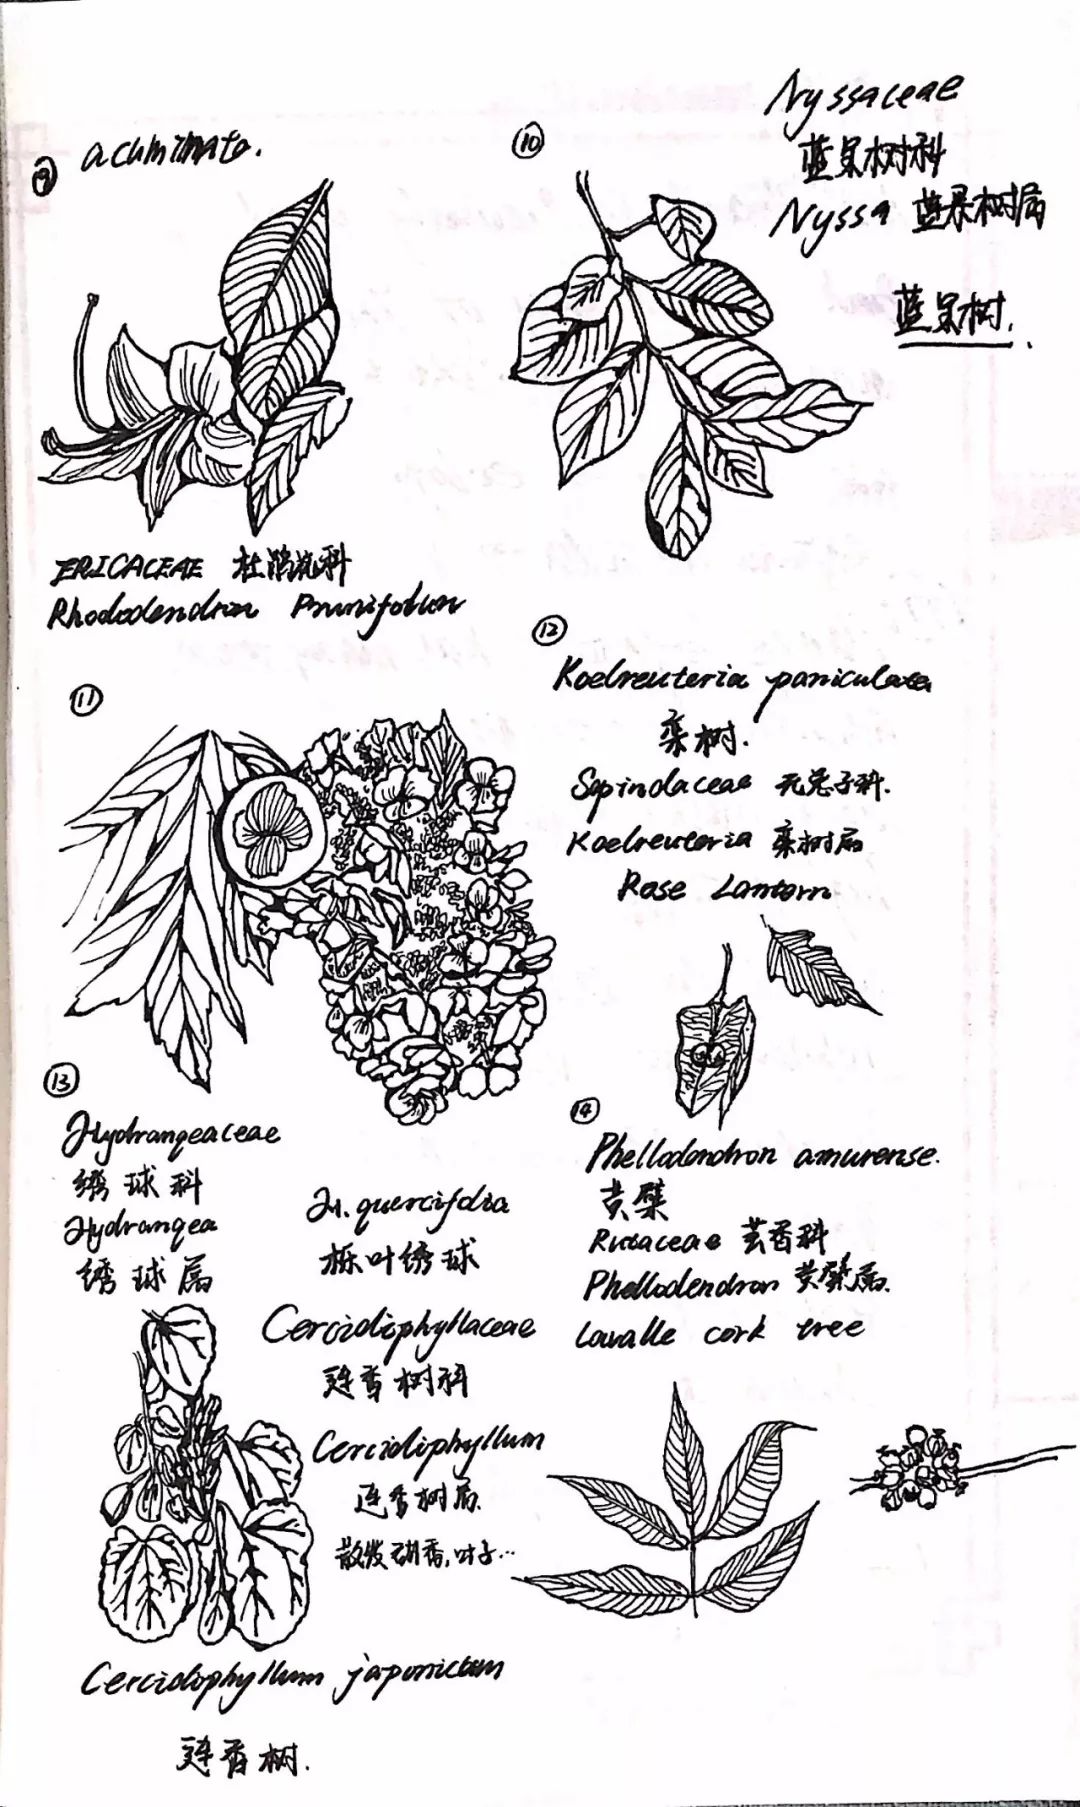 ⑨ acuminata.
ERICACEAE 杜鹃花科
Rhododendron Prunifolium
⑩
Nyssaceae
蓝果树科
Nyssa 蓝果树属
蓝果树.
⑪
⑫
Koelreuteria paniculata
栾树.
Sapindaceae 无患子科.
Koelreuteria 栾树属
Rose Lantern
⑬
Hydrangeaceae
绣球科
Hydrangea
绣球属
H. quercifolia
栎叶绣球
Cercidiphyllaceae
连香树科
Cercidiphyllum
连香树属.
Cercidophyllum japonicum
连香树.
⑭
Phellodendron amurense.
黄檗
Rutaceae 芸香科
Phellodendron 黄檗属.
Lavalle cork tree